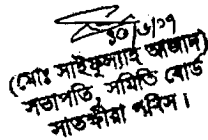 ১০/৬/১৭
(মোঃ সাইফুল্যাহ আজাদ)
সভাপতি, সমিতি বোর্ড
সাতক্ষীরা পবিস।